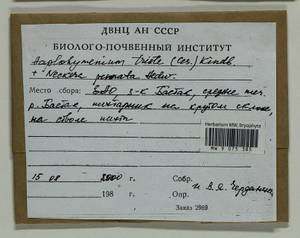 ДВНЦ АН СССР
БИОЛОГО-ПОЧВЕННЫЙ ИНСТИТУТ
Haplohymenium triste (Ces.) Kindb.
+ Neckera pennata Hedw.
Место сбора: ЕАО, з-к Бастак, среднее теч.
р. Бастак, пихтарник на крутом склоне,
на стволе пихты
Herbarium MW, Bryophyta
15 08 2000 г. Собр.
198 г. Опр.
Заказ 2989